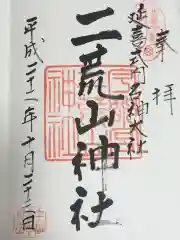 奉拝
延喜式内名神大社
二荒山神社
平成二十二年十月二十三日